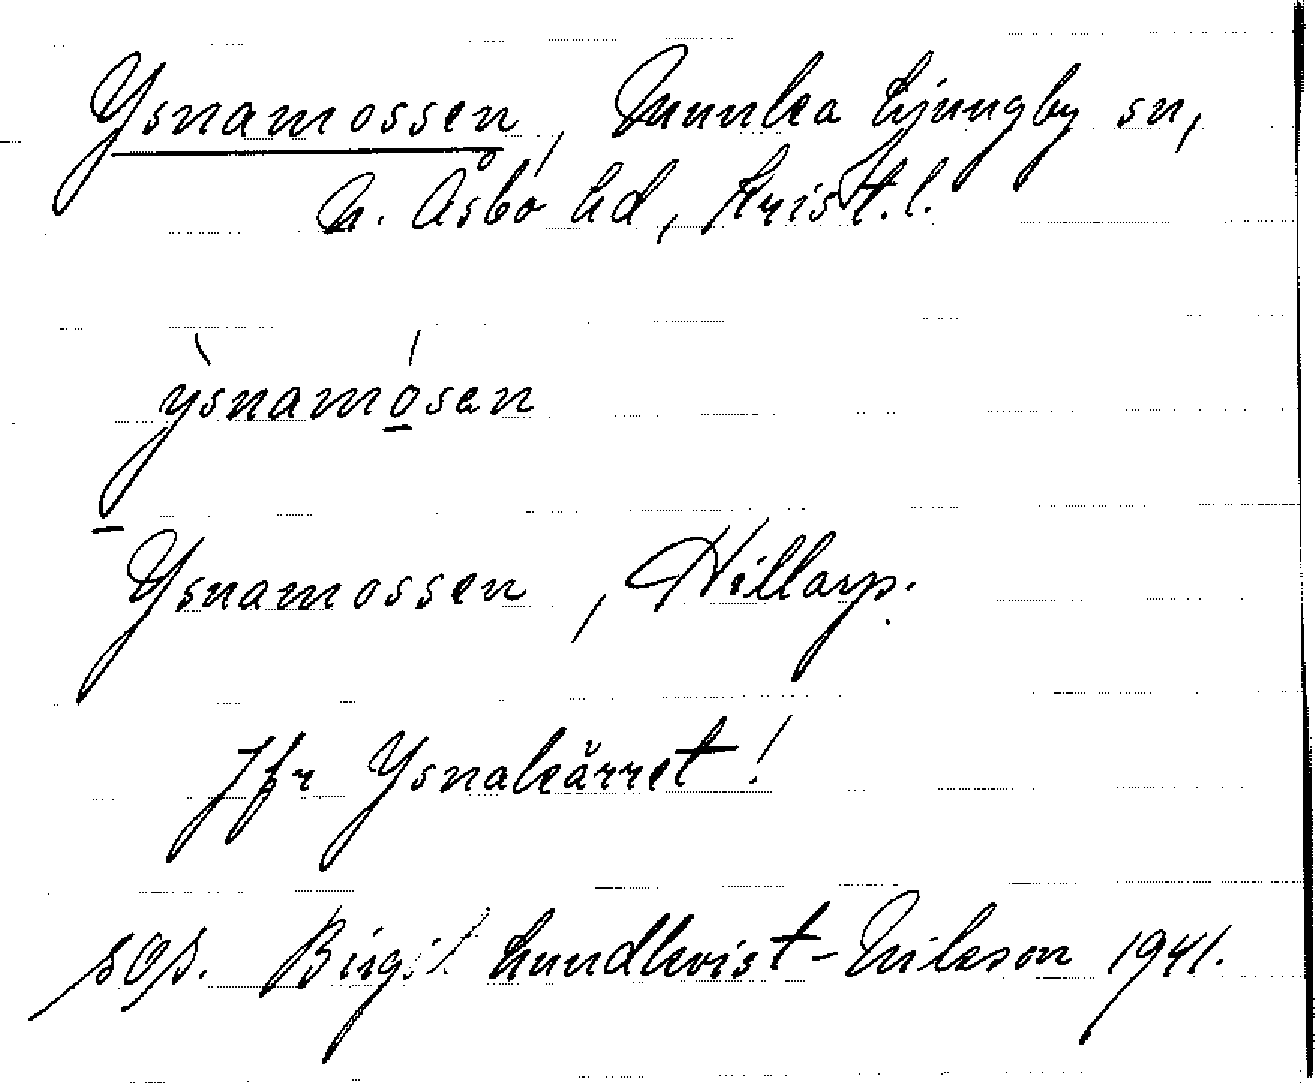 Ysnamossen, Munka Ljungby sn,
N. Åsbo hd, Krist.l.
ỳsnamósen
Ysnamossen, Hillarp.
Jfr Ysnakärret!
sop. Birgit Lundkvist-Nilsson 1941.